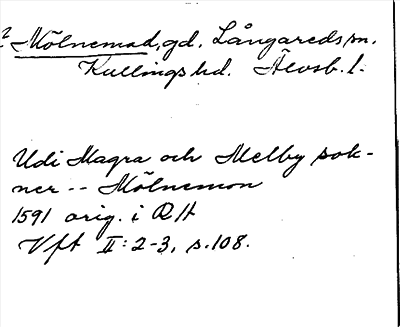 2 Mölnemad, gd. Långareds sn.
Kullings hd. Älvsb. l.
Udi Magra och Melby sok-
ner -- Mölnemon
1591 orig. i RA
Vft II: 2-3, s. 108.